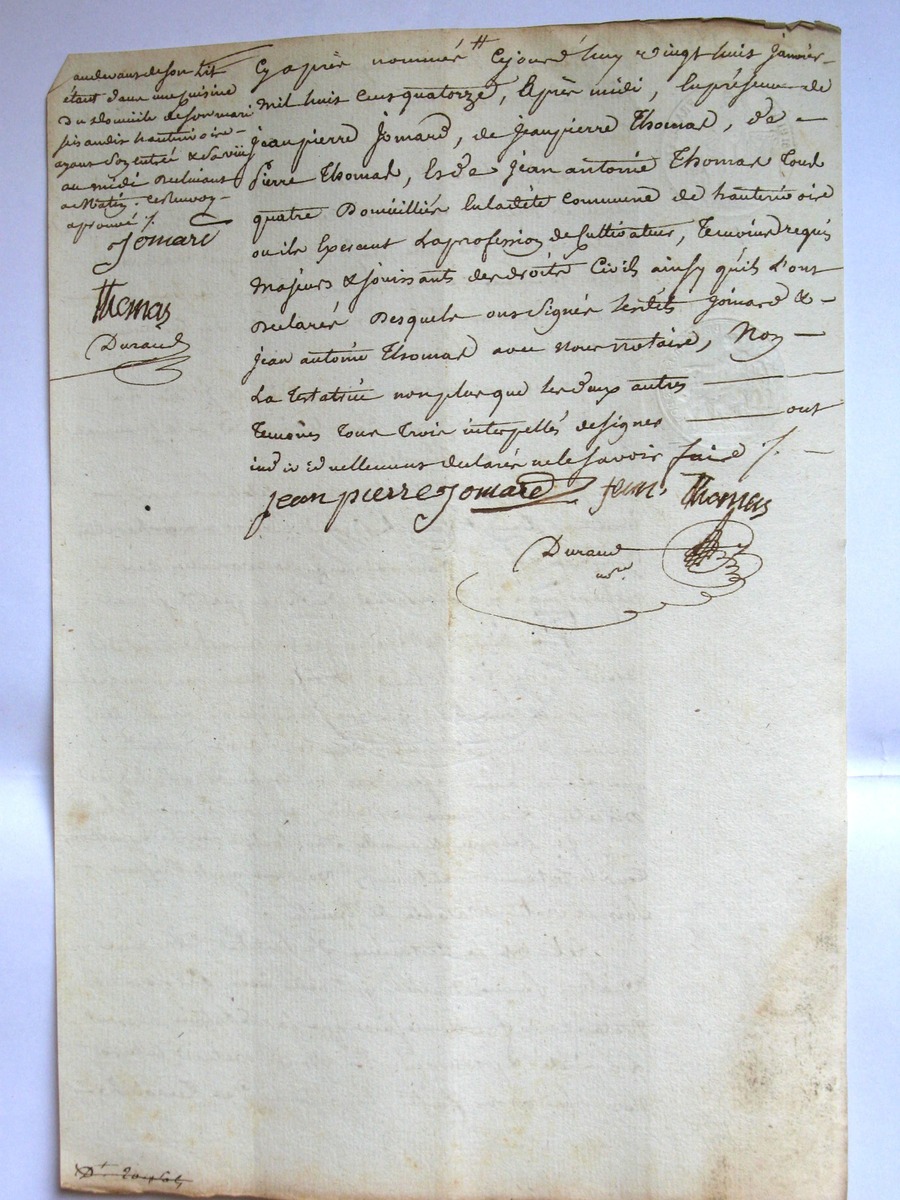 audevant de son lit
étant dans une cuisine
du domicile de son mari
sis audit hauterivoire
ayant son entrée & service
au midi declinant
au Matin. ce renvoy
aprouvé ./.
Jomard
Thomas
Durand
Cy après nommés # Cejourd'huy vingt huit Janvier
mil huit cent quatorze, après midi, En présence de
jean pierre Jomard, de jean pierre Thomas, de
Pierre Thomas, Et de jean antoine Thomas tous
quatre Domiciliés En ladite Commune de hauterivoire
ou ils Exercent La profession de Cultivateur, Temoins requis
Majeurs & jouissants des droits Civils ainsy qu'ils L'ont
declaré desquels ont signés lesdits Jomard &
jean antoine Thomas avec nous notaire, Non
La testatrice non plus que les deux autres
temoins tous trois interpellés de signer ont
individuellement declarés ne le savoir faire ./.
jean pierre Jomard jean Thomas
Durand
nre